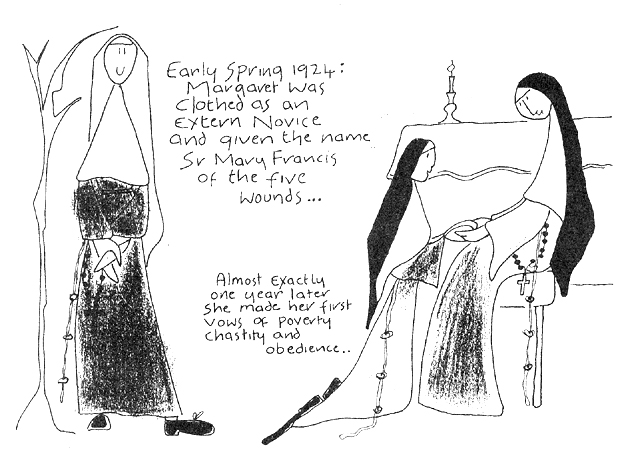 Early Spring 1924:
Margaret was
Clothed as an
Extern Novice
and given the name
Sr Mary Francis
of the five
wounds...
Almost exactly
one year later
she made her first
vows of poverty
chastity and
obedience..